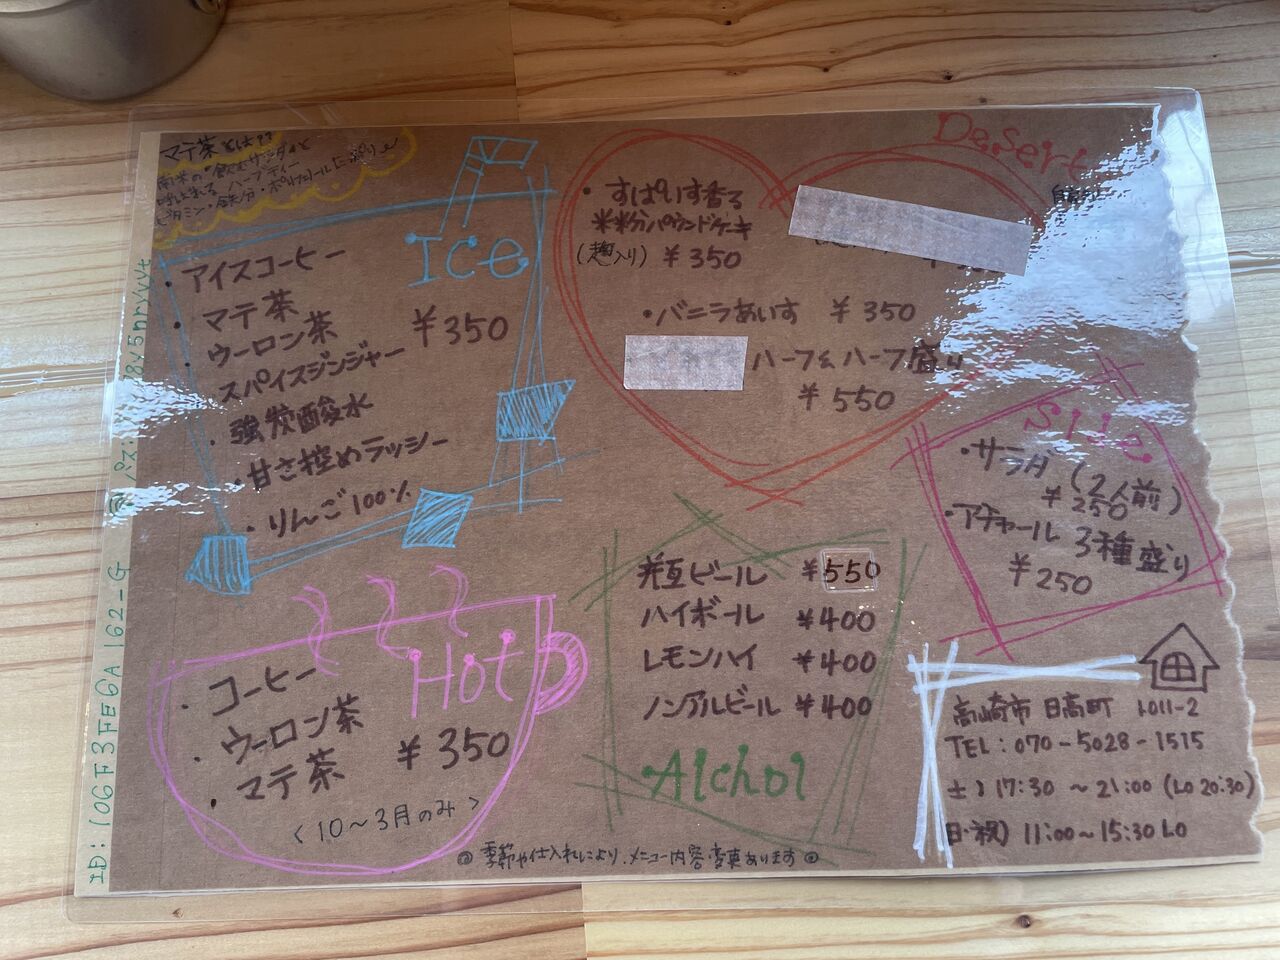 マテ茶とは??
南米の"飲むサラダ"と
呼ばれる ハーブティー
ビタミン・鉄分・ポリフェノール
Ice
・アイスコーヒー
・マテ茶
・ウーロン茶 ¥350
・スパイスジンジャー
・強炭酸水
・甘さ控めラッシー
・りんご100%
Hot
・コーヒー
・ウーロン茶
・マテ茶 ¥350
<10〜3月のみ>
Desert
・すぱいす香る
米粉パウンドケーキ
(麹入り) ¥350
・バニラあいす ¥350
ハーフ&ハーフ盛り
¥550
Side
・サラダ (2人前)
¥250
・アチャール 3種盛り
¥250
ビール ¥550
ハイボール ¥400
レモンハイ ¥400
ノンアルビール ¥400
Alchol
高崎市 日高町 1011-2
TEL:070-5028-1515
土) 17:30 〜21:00 (LO 20:30)
日・祝) 11:00〜15:30 LO
◎ 季節や仕入れにより、メニュー内容変更あります ◎
ID: 106F3FE6A162-G パス: